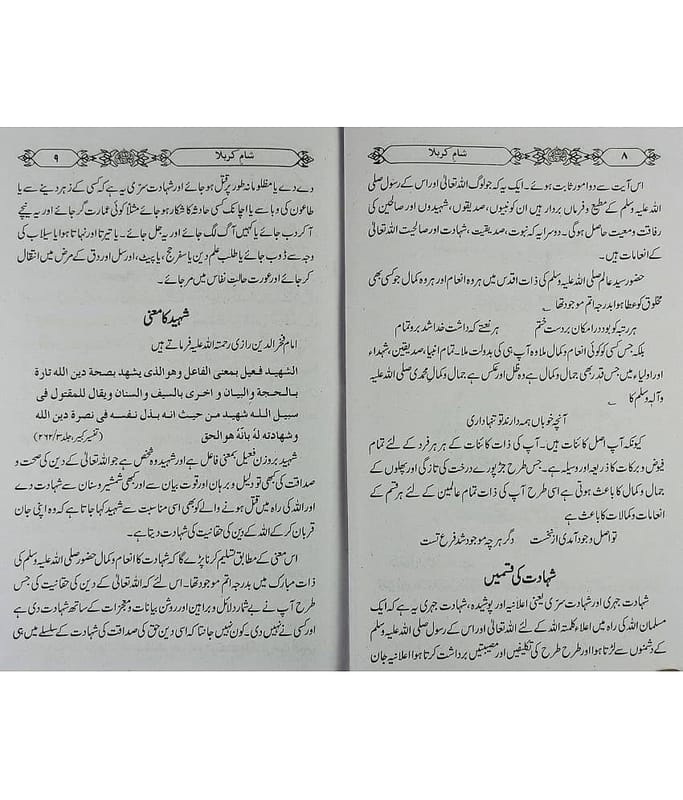 ۸
شام کربلا
اس آیت سے دو امور ثابت ہوئے۔ ایک یہ کہ جو لوگ اللہ تعالیٰ اور اس کے رسول صلی
اللہ علیہ وسلم کے مطیع و فرماں بردار ہیں ان کو نبیوں، صدیقوں، شہیدوں اور صالحین کی
رفاقت و معیت حاصل ہوگی۔ دوسرا یہ کہ نبوت، صدیقیت، شہادت اور صالحیت اللہ تعالیٰ
کے انعامات ہیں۔
حضور سید عالم صلی اللہ علیہ وسلم کی ذات اقدس میں ہر وہ انعام اور ہر وہ کمال جو کسی بھی
مخلوق کو عطا ہوا بدرجہ اتم موجود تھا
ہر رتبہ کہ بود در امکاں بروست ختم ہر نعمتے کہ داشت خدا شد برو تمام
بلکہ جس کسی کو کوئی انعام و کمال ملا وہ آپ ہی کی بدولت ملا۔ تمام انبیا، صدیقین، شہداء
اور اولیاء میں جس قدر بھی جمال و کمال ہے وہ ظل اور عکس ہے جمال و کمال محمدی صلی اللہ علیہ
وآلہ وسلم کا
آنچہ خوباں ہمہ دارند تو تنہا داری
کیونکہ آپ اصل کائنات ہیں۔ آپ کی ذات کائنات کے ہر ہر فرد کے لئے تمام
فیوض و برکات کا ذریعہ اور وسیلہ ہے۔ جس طرح جڑ پورے درخت کی تازگی اور پھلوں کے
جمال و کمال کا باعث ہوتی ہے اسی طرح آپ کی ذات تمام عالمین کے لئے ہر قسم کے
انعامات و کمالات کا باعث ہے
تو اصل وجود آمدی از نخست دگر ہرچہ موجود شد فرع تست
شہادت کی قسمیں
شہادت جہری اور شہادت سرّی یعنی اعلانیہ اور پوشیدہ، شہادت جہری یہ ہے کہ ایک
مسلمان اللہ کی راہ میں اعلاء کلمۃ اللہ کے لئے اللہ تعالیٰ اور اس کے رسول صلی اللہ علیہ وسلم
کے دشمنوں سے لڑتا ہوا اور طرح طرح کی تکلیفیں اور مصیبتیں برداشت کرتا ہوا اعلانیہ جان
شام کربلا
۹
دے دے یا مظلومانہ طور پر قتل ہو جائے اور شہادت سرّی یہ ہے کہ کسی کے زہر دینے سے یا
طاعون کی وبا سے یا اچانک کسی حادثہ کا شکار ہو جائے مثلاً کوئی عمارت گر جائے اور یہ نیچے
آکر دب جائے یا کہیں آگ لگ جائے اور یہ جل جائے۔ یا تیرتا اور نہاتا ہوا یا سیلاب کی
وجہ سے ڈوب جائے یا طلب علم دین یا سفر حج، یا پیٹ، اور سل اور دق کے مرض میں انتقال
کر جائے اور عورت حالت نفاس میں مر جائے۔
شہید کا معنیٰ
امام فخر الدین رازی رحمتہ اللہ علیہ فرماتے ہیں
الشهيد فعيل بمعنى الفاعل وهو الذى يشهد بصحة دين الله تارة
بالحجة والبيان و اخرى بالسيف والسنان ويقال للمقتول فى
سبيل الله شهيد من حيث انه بذل نفسه فى نصرة دين الله
وشهادته له بانه هو الحق (تفسیر کبیر، جلد ۳/۲۶۲)
شہید بروزن فعیل بمعنی فاعل ہے اور شہید وہ شخص ہے جو اللہ تعالیٰ کے دین کی صحت و
صداقت کی کبھی تو دلیل و برہان اور قوت بیان سے اور کبھی شمشیر و سنان سے شہادت دے
اور اللہ کی راہ میں قتل ہونے والے کو بھی اسی مناسبت سے شہید کہا جاتا ہے کہ وہ اپنی جان
قربان کر کے اللہ کے دین کی حقانیت کی شہادت دیتا ہے۔
اس معنی کے مطابق تسلیم کرنا پڑے گا کہ شہادت کا انعام و کمال حضور صلی اللہ علیہ وسلم کی
ذات مبارک میں بدرجہ اتم موجود تھا۔ اس لئے کہ اللہ تعالیٰ کے دین کی حقانیت کی جس
طرح آپ نے بے شمار دلائل و براہین اور روشن بیانات و معجزات کے ساتھ شہادت دی ہے
اور کسی نے نہیں دی۔ کون نہیں جانتا کہ اسی دین حق کی صداقت کی شہادت کے سلسلے میں ہی